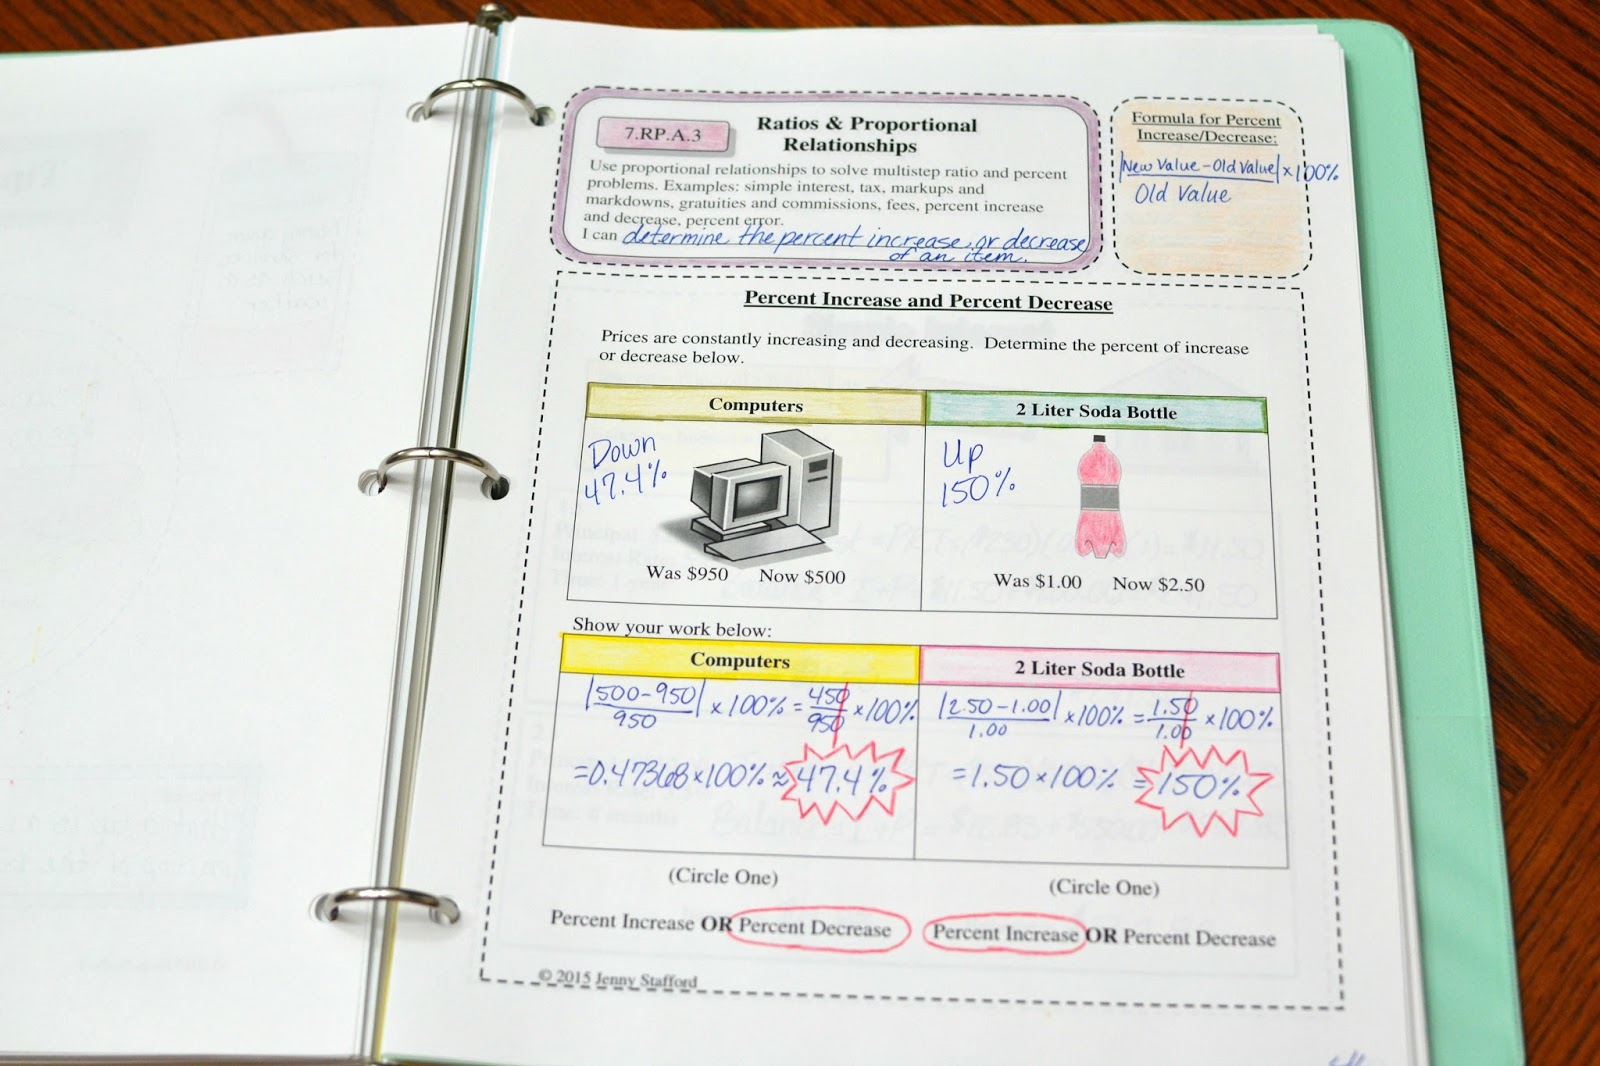 7.RP.A.3
Ratios & Proportional
Relationships
Use proportional relationships to solve multistep ratio and percent
problems. Examples: simple interest, tax, markups and
markdowns, gratuities and commissions, fees, percent increase
and decrease, percent error.
I can determine the percent increase or decrease
of an item.
Formula for Percent
Increase/Decrease:
|New Value - Old Value| × 100%
Old Value
Percent Increase and Percent Decrease
Prices are constantly increasing and decreasing. Determine the percent of increase
or decrease below.
Computers
Down
47.4%
Was $950 Now $500
2 Liter Soda Bottle
Up
150%
Was $1.00 Now $2.50
Show your work below:
Computers
|500-950| × 100% = 450 × 100%
950 950
=0.47368×100% ≈ 47.4%
2 Liter Soda Bottle
|2.50-1.00| ×100% = 1.50 ×100%
1.00 1.00
=1.50×100% = 150%
(Circle One)
Percent Increase OR Percent Decrease
(Circle One)
Percent Increase OR Percent Decrease
© 2015 Jenny Stafford